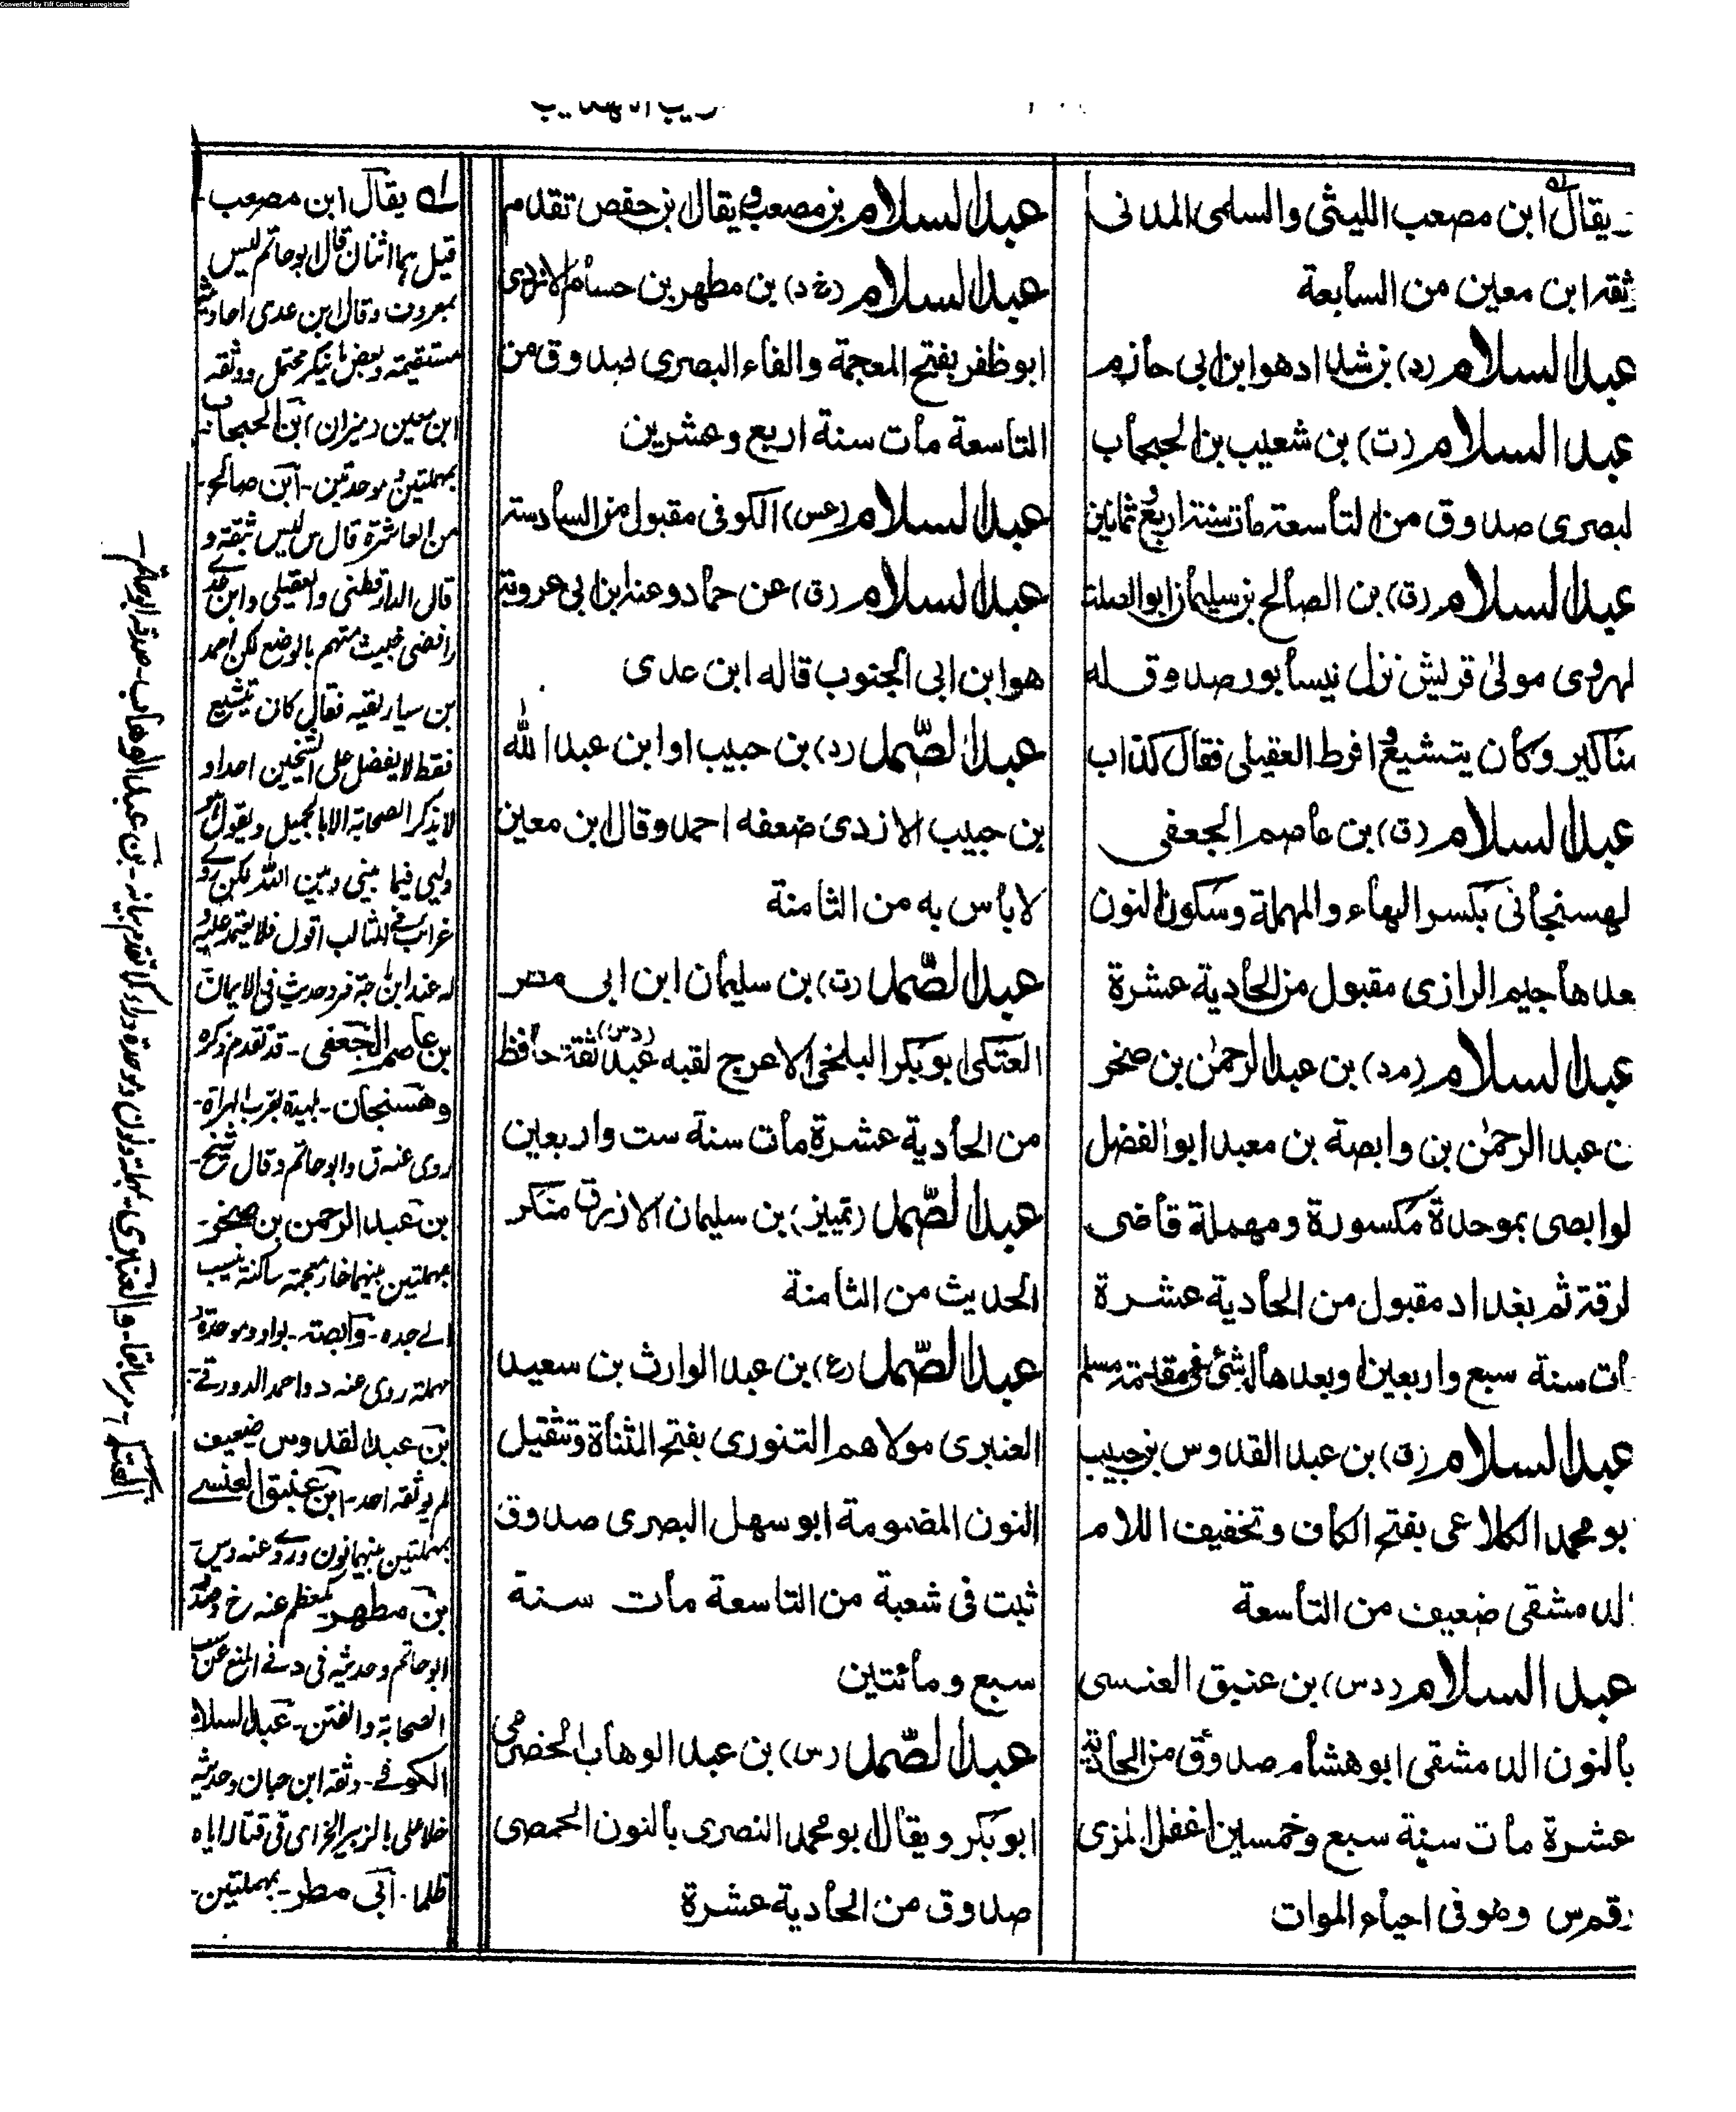 Converted by Tiff Combine - unregistered
يقال ابن مصعب الليثي والسلمي المدني
ثقه ابن معين من السابعة
عبد السلام (د) بن شداد هو ابن ابي حازم
عبد السلام (ت) بن شعيب بن الحبحاب
لبصري صدوق من التاسعة مات سنة اربع وثمانين
عبد السلام (ق) بن الصالح بن سليمان ابو الصلت
لهروي مولى قريش نزل نيسابور صدوق له
مناكير وكان يتشيع وافرط العقيلي فقال كذاب
عبد السلام (ق) بن عاصم الجعفي
لهسنجاني بكسر الهاء والمهملة وسكون النون
بعدها جيم الرازي مقبول من الحادية عشرة
عبد السلام (مد) بن عبد الرحمن بن صخر
ن عبد الرحمن بن وابصة بن معبد ابو الفضل
لوابصي بموحدة مكسورة ومهملة قاضي
لرقة ثم بغداد مقبول من الحادية عشرة
ات سنة سبع واربعين وبعدها لاشئ في مقدمة مسلم
عبد السلام (ق) بن عبد القدوس بن حبيب
بو محمد الكلاعي بفتح الكاف وتخفيف اللام
الدمشقي ضعيف من التاسعة
عبد السلام (دس) بن عتيق العنسي
بالنون الدمشقي ابو هشام صدوق من الحادية
عشرة مات سنة سبع وخمسين اغفل المزي
رقم س وهو في احياء الموات
عبد السلام بن مصعب ويقال بن حفص تقدم
عبد السلام (خ د) بن مطهر بن حسام الازدي
ابو ظفر بفتح المعجمة والفاء البصري صدوق من
التاسعة مات سنة اربع وعشرين
عبد السلام (عس) الكوفي مقبول من السادسة
عبد السلام (ق) عن حماد وعنه ابن ابي عروبة
هو ابن ابي الجنوب قاله ابن عدي
عبد الصمد (د) بن حبيب او ابن عبد الله
بن حبيب الازدي ضعفه احمد وقال ابن معين
لا باس به من الثامنة
عبد الصمد (ت) بن سليمان ابن ابي مطر
العتكي ابو بكر البلخي الاعرج لقبه عبد (دس) ثقة حافظ
من الحادية عشرة مات سنة ست واربعين
عبد الصمد (تمييز) بن سليمان الازرق منكر
الحديث من الثامنة
عبد الصمد (ع) بن عبد الوارث بن سعيد
العنبري مولاهم التنوري بفتح المثناة وتثقيل
النون المضمومة ابو سهل البصري صدوق
ثبت في شعبة من التاسعة مات سنة
سبع ومائتين
عبد الصمد (س) بن عبد الوهاب الحضرمي
ابو بكر ويقال ابو محمد النصري بالنون الحمصي
صدوق من الحادية عشرة
له يقال ابن مصعب -
قيل هما اثنان قال ابو حاتم ليس
بمعروف وقال ابن عدي احاديثه
مستقيمة وبعض ما ينكر محتمل ووثقه
ابن معين (ميزان) ابن الحبحاب -
بمهملتين وموحدتين - ابن صالح -
من العاشرة قال س ليس بثقة و
قال الدارقطني والعقيلي وابن عدي
رافضي خبيث متهم بالوضع لكن احمد
بن سيار لقيه فقال كان يتشيع
فقط لا يفضل على الشيخين احدا و
لا يذكر الصحابة الا بالجميل ويقول
فيما بيني وبين الله لكن روى
غرائب في المثالب اقول فلا يعتمد عليه
له عند ابن ماجة فرد حديث في الايمان
بن عاصم الجعفي - قد تقدم ذكره
وهسنجان - بليدة بقرب الهراة -
روى عنه ق وابو حاتم وقال شيخ -
بن عبد الرحمن بن صخر -
بمهملتين بينهما خاء معجمة ساكنة ينسب
الى جده - وابصة - بواو وموحدة و
مهملة روى عنه د واحمد الدورقي -
بن عبد القدوس ضعيف
لم يوثقه احد - ابن عتيق العنسي
بمهملتين بينهما نون وروى عنه دس
بن مطهر كمعظم عنه خ د
ابو حاتم وحديثه في د في المنع عن سب
الصحابة والفتن - عبد السلام
الكوفي - وثقه ابن حبان وحديثه
خلا علي بالزبير في قتاله اياه
ظلما - ابي مطر - بمهملتين -
العتكي - مر سابقا - والعنبري - بن عبد الوهاب - صدقه ابو حاتم -